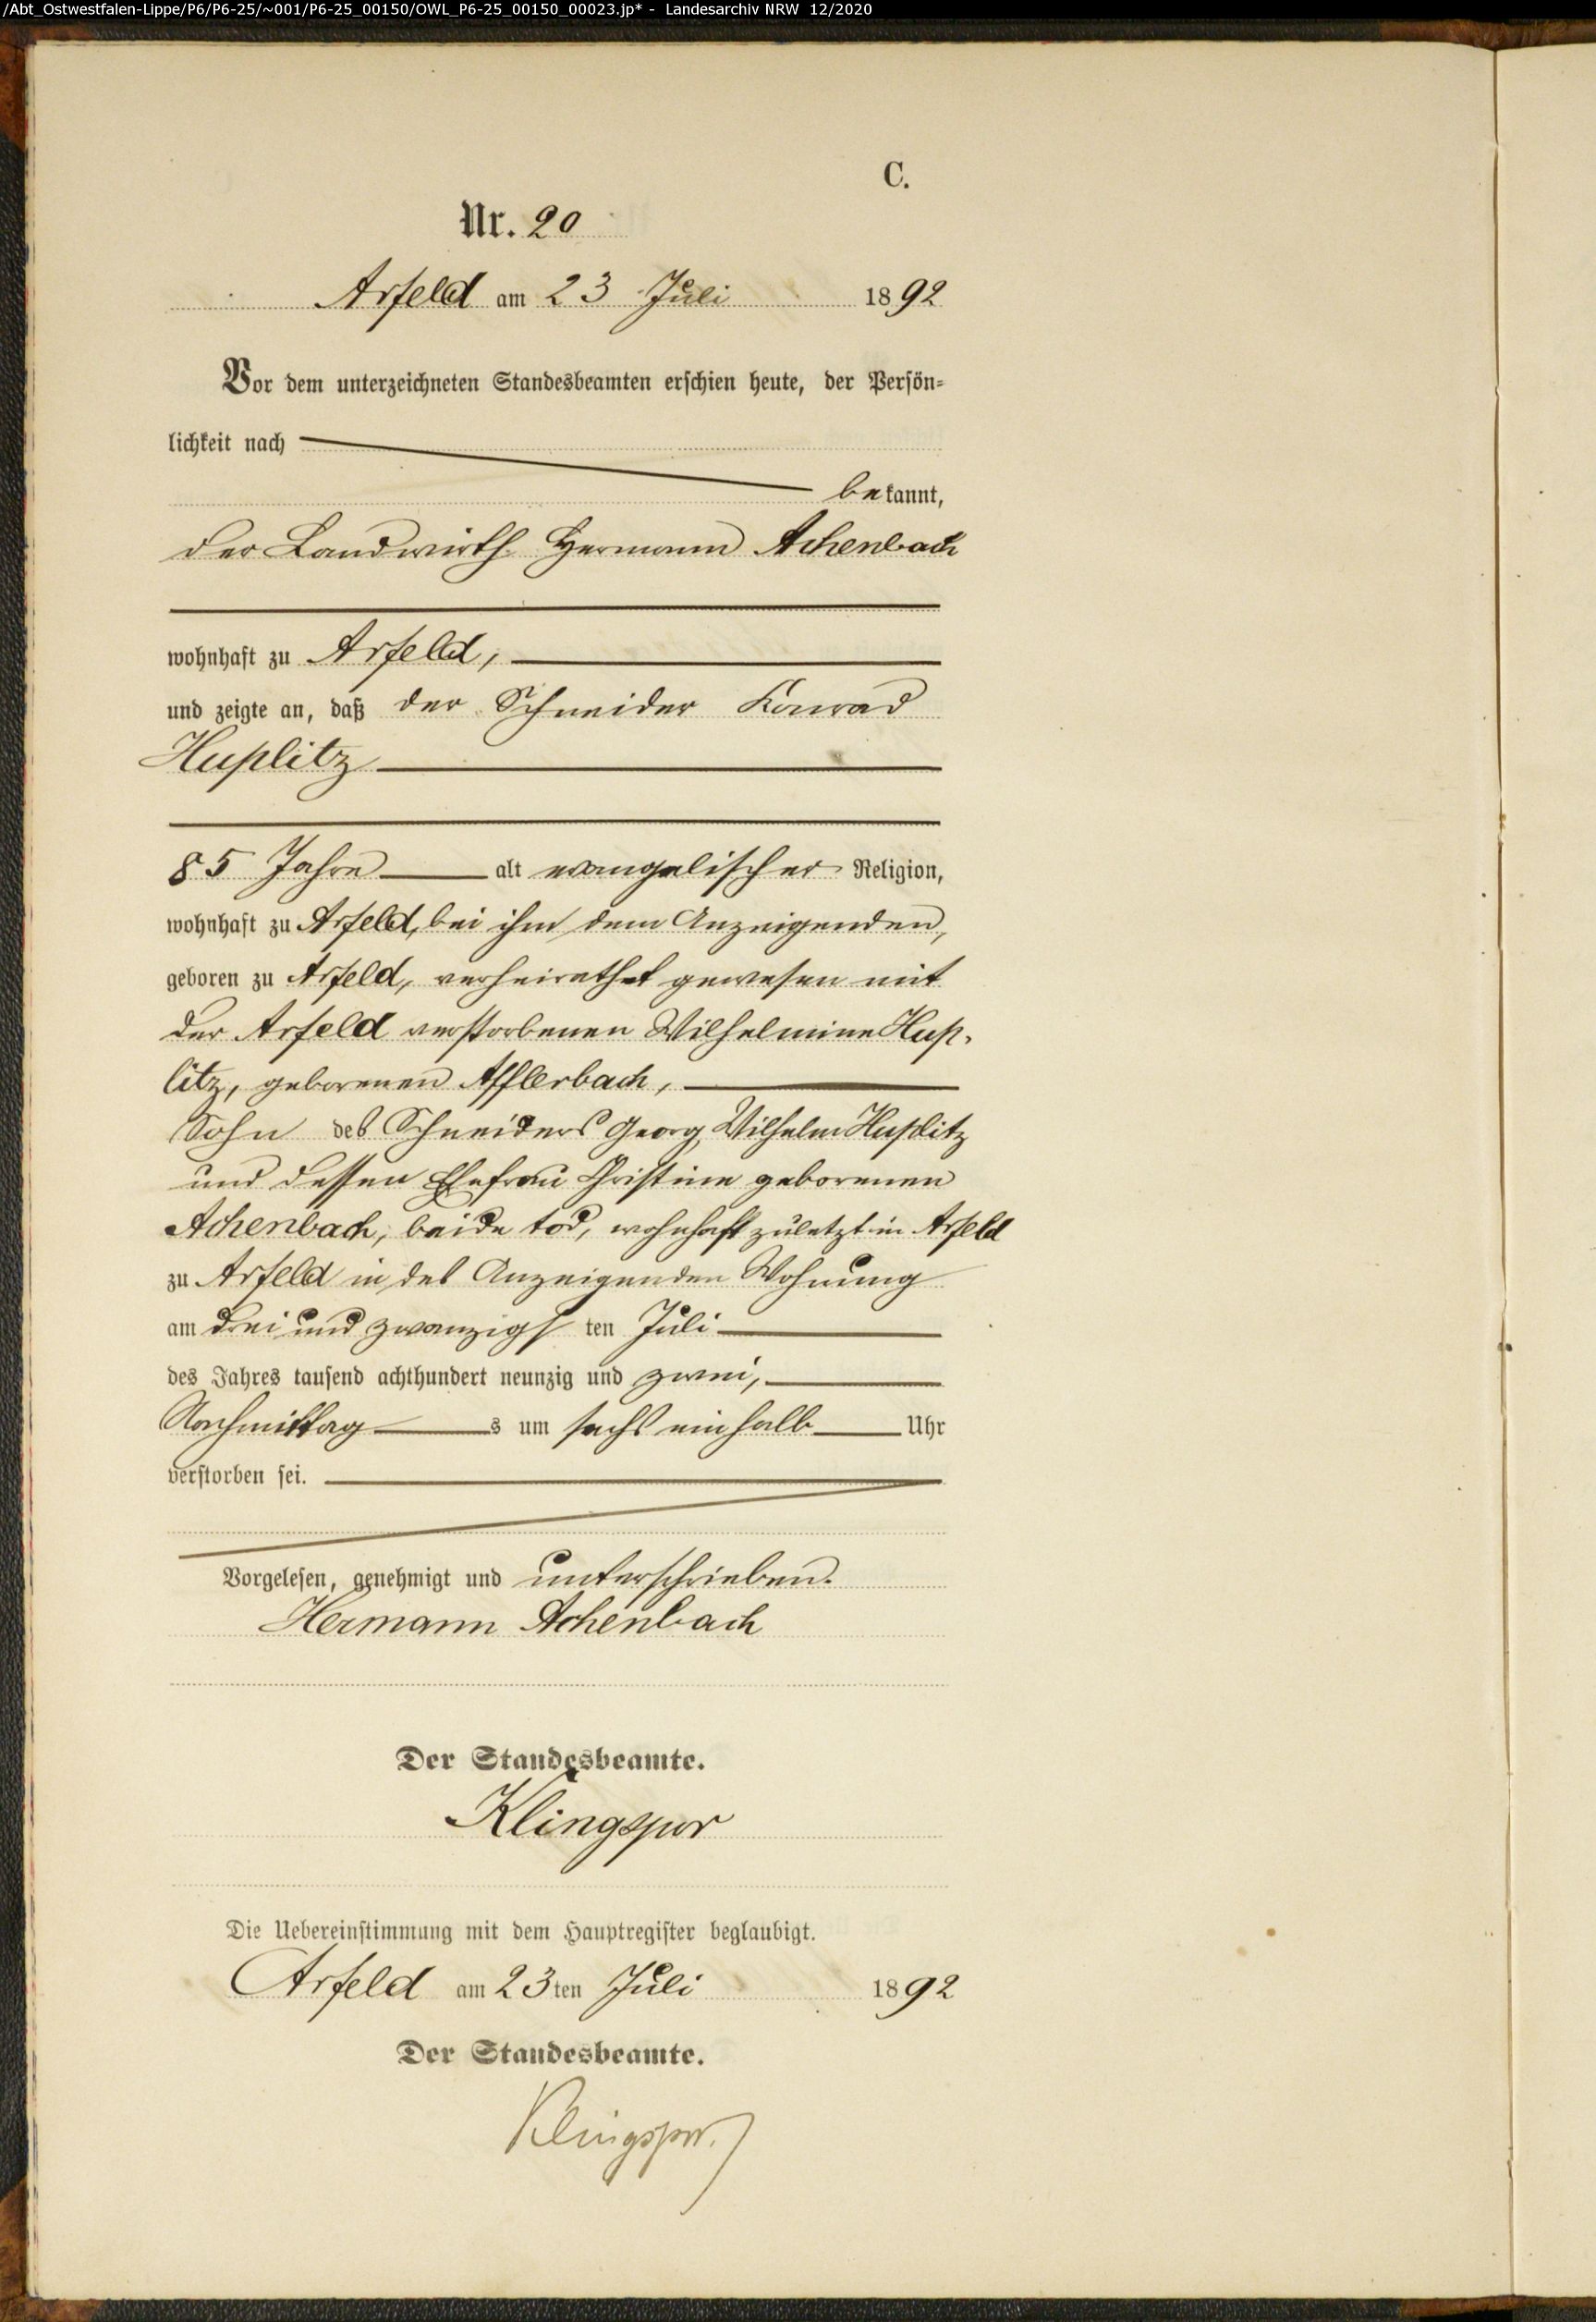 /Abt_Ostwestfalen-Lippe/P6/P6-25/~001/P6-25_00150/OWL_P6-25_00150_00023.jp* - Landesarchiv NRW 12/2020
C.
Nr. 20
Arfeld am 23 Juli 1892
Vor dem unterzeichneten Standesbeamten erschien heute, der Persön-
lichkeit nach
bekannt,
der Landwirth Hermann Achenbach
wohnhaft zu Arfeld,
und zeigte an, daß der Schneider Konrad
Huplitz
85 Jahre alt evangelischer Religion,
wohnhaft zu Arfeld, bei ihm dem Anzeigenden,
geboren zu Arfeld, verheirathet gewesen mit
der Arfeld verstorbenen Wilhelmine Hup-
litz, geborenen Afflerbach,
Sohn des Schneiders Georg Wilhelm Huplitz
und dessen Ehefrau Christine geborenen
Achenbach, beide tod, wohnhaft zuletzt in Arfeld
zu Arfeld in des Anzeigenden Wohnung
am drei und zwanzigsten Juli
des Jahres tausend achthundert neunzig und zwei,
Nachmittags um sechs einhalb Uhr
verstorben sei.
Vorgelesen, genehmigt und unterschrieben.
Hermann Achenbach
Der Standesbeamte.
Klingspor
Die Uebereinstimmung mit dem Hauptregister beglaubigt.
Arfeld am 23ten Juli 1892
Der Standesbeamte.
Klingspor.